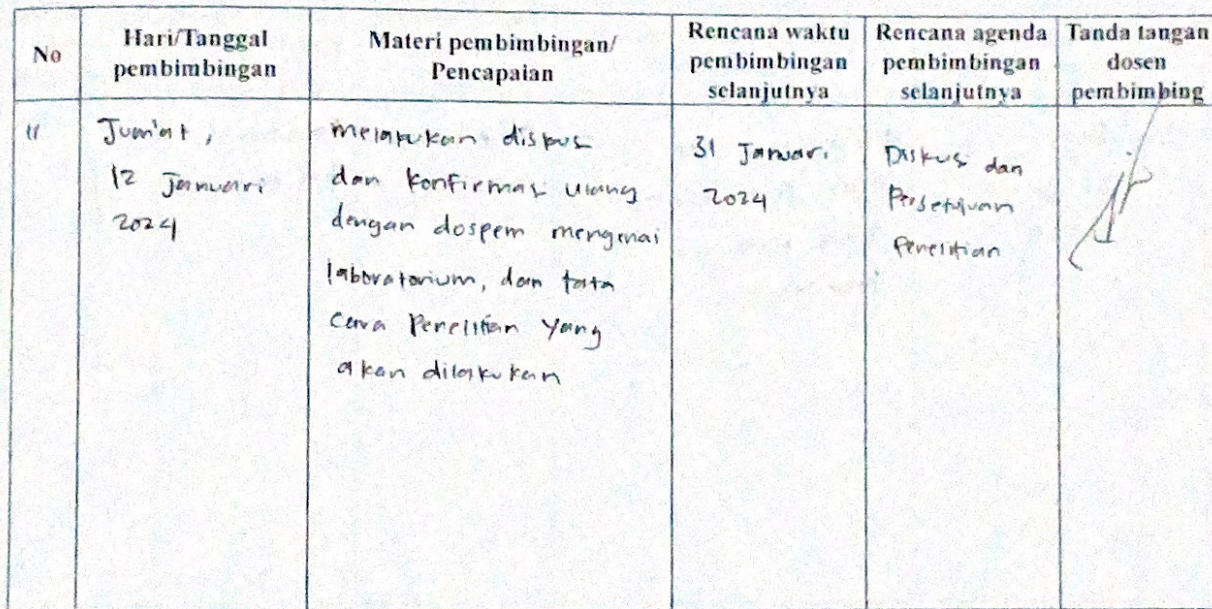 No
Hari/Tanggal
pembimbingan
Materi pembimbingan/
Pencapaian
Rencana waktu
pembimbingan
selanjutnya
Rencana agenda
pembimbingan
selanjutnya
Tanda tangan
dosen
pembimbing
11
Jum'at,
12 Januari
2024
melakukan diskusi
dan konfirmasi ulang
dengan dospem mengenai
laboratorium, dan tata
cara Penelitian yang
akan dilakukan
31 Januari
2024
Diskusi dan
Persetujuan
Penelitian